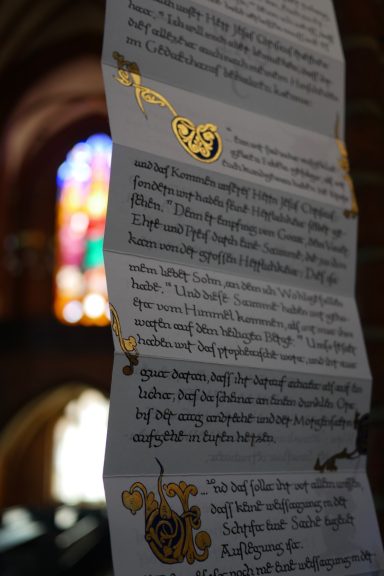 auch unser Herr Jesus Christus eröffnet
hat." Ich will mich aber bemühen, dass ihr
dies allezeit auch nach meinem Hinscheiden
im Gedächtnis behalten könnt.
und das Kommen unseres Herrn Jesus Christus;
sondern wir haben seine Herrlichkeit selber ge-
sehen." Denn er empfing von Gott, dem Vater,
Ehre und Preis durch eine Stimme, die zu ihm
kam von der grossen Herrlichkeit: Dies ist
mein lieber Sohn, an dem ich Wohlgefallen
habe." Und diese Stimme haben wir gehö-
ret vom Himmel kommen, als wir mit ihm
waren auf dem heiligen Berge." Umso fester
haben wir das prophetische Wort, und ihr tut
gut daran, dass ihr darauf achtet als auf ein
Licht, das da scheint an einem dunklen Ort,
bis der Tag anbreche und der Morgenstern
aufgehe in euren Herzen.
...Und das sollt ihr vor allem wissen,
dass keine Weissagung in der
Schrift eine Sache eigener
Auslegung ist.
noch nie eine Weissagung in der